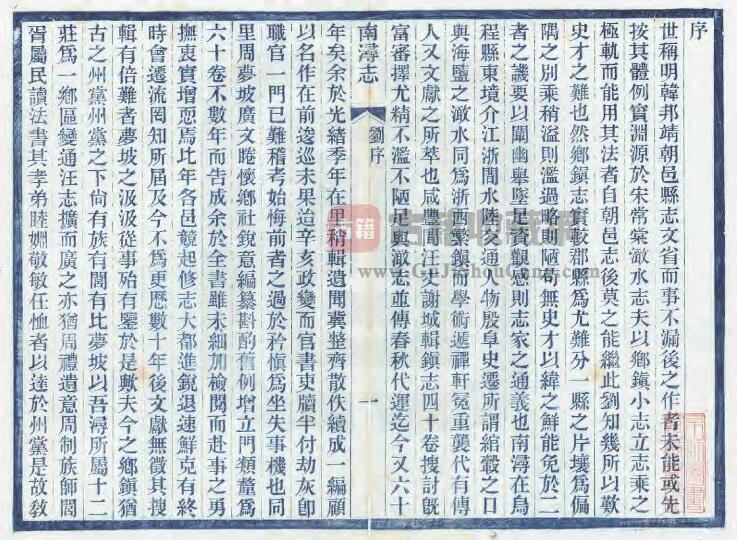 序
世稱明韓邦靖朝邑縣志文省而事不漏後之作者未能或先
按其體例實淵源於宋常棠澉水志夫以鄉鎮小志立志乘之
極軌而能用其法者自朝邑志後莫之能繼此劉知幾所以歎
史才之難也然鄉鎮志實較郡縣爲尤難分一縣之片壤爲偏
隅之別乘稍溢則濫過略則陋苟無史才以緯之鮮能免於二
者之譏要以闡幽舉墜足資觀感則志家之通義也南潯在烏
程縣東境介江浙間水陸交通人物殷阜史遷所謂綰轂之口
與海鹽之澉水同爲浙西繁鎮而學術遞禪軒冕重襲代有傳
人又文獻之所萃也咸豐間汪丈謝城輯鎮志四十卷搜討既
富審擇尤精不濫不陋足與澉志並傳春秋代運迄今又六十
南潯志
劉序
一
年矣余於光緒季年在里稍輯遺聞冀整齊散佚續成一編顧
以名作在前逡巡未果迨辛亥政變而官書吏牘半付劫灰卽
職官一門已難稽考始悔前者之過於矜愼爲坐失事機也同
里周夢坡廣文睠懷鄉社銳意編纂斟酌舊例增立門類釐爲
六十卷不數年而告成余於全書雖未細加檢閱而赴事之勇
撫衷實增恧焉比年各邑競起修志大都進銳退速鮮克有終
時會遷流罔知所屆及今不爲更歷數十年後文獻無徵其搜
輯有倍難者夢坡之汲汲從事殆有鑒於是歟夫今之鄉鎮猶
古之州黨州黨之下尚有族有閭有比夢坡以吾潯所屬十二
莊爲一鄉區變通汪志擴而廣之亦猶周禮遺意周制族師閭
胥屬民讀法書其孝弟睦婣敬敏任恤者以達於州黨是故敎
古籍收藏网
www.GuJiShouCang.com